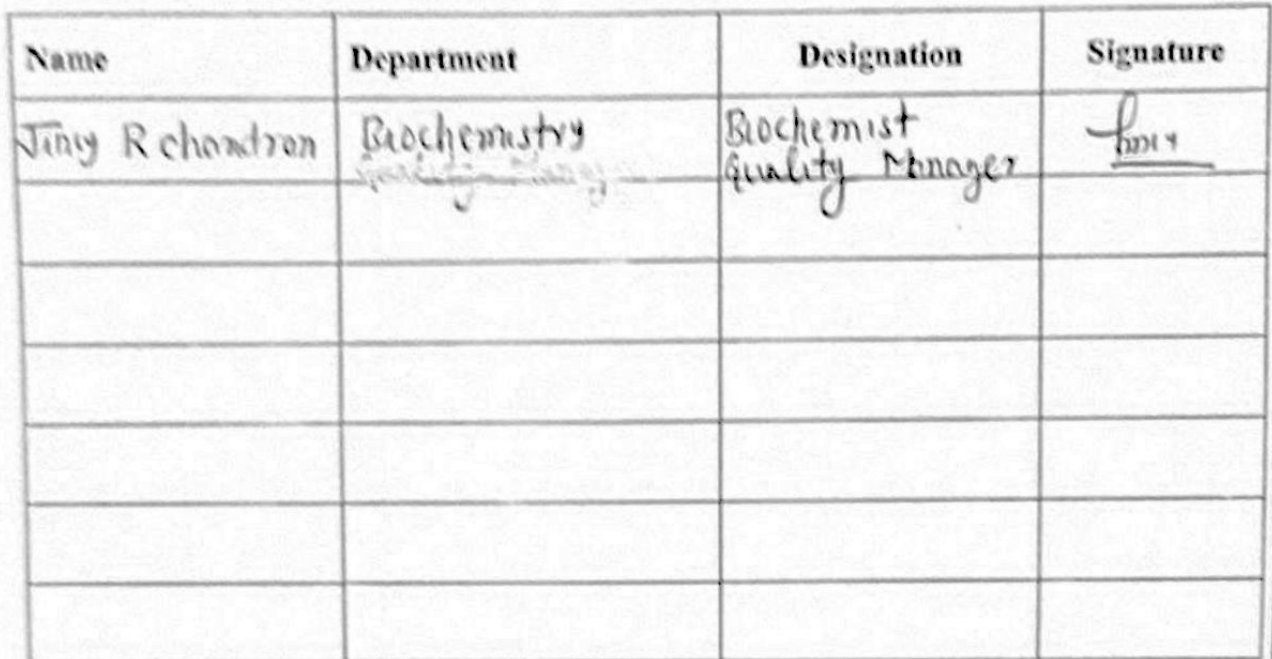 Name Department Designation Signature
Jiny R chandran Biochemistry Biochemist
Quality Manager